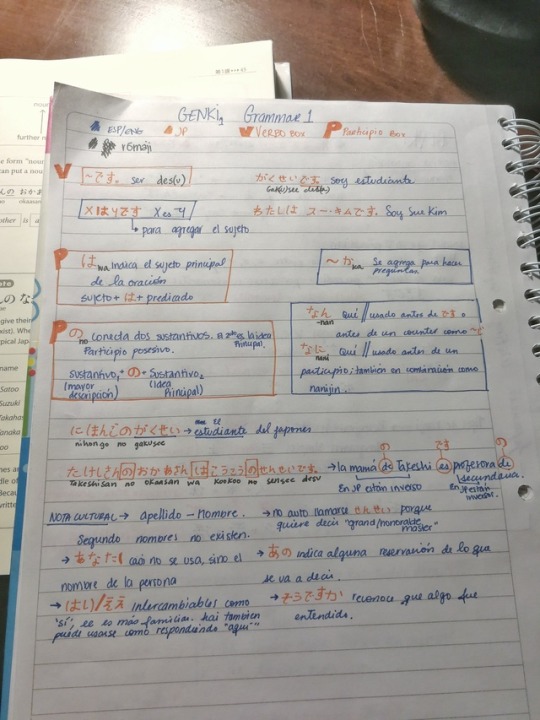 GENKI 1 Grammar 1
ESP/ENG JP V VERBO BOX P Participio Box
rōmaji
V ~です。 ser des(u) がくせいです soy estudiante
Gakusee des(u)
XはYです X es Y わたしは スー・キムです。 Soy Sue Kim
para agregar el sujeto
P は wa indica el sujeto principal
de la oración
sujeto + は + predicado
~か ka Se agrega para hacer
preguntas.
P の no conecta dos sustantivos. El 2do es la idea
Principal.
Participio posesivo.
sustantivo1 + の + Sustantivo2
(mayor descripción) (idea Principal)
なん Qué // usado antes de です o
nan antes de un counter como ~じ
なに Qué // usado antes de un
nani participio; también en combinación como
nanijin.
にほんごのがくせい → estudiante del japones
nihongo no gakusee
たけしさんのおかあさんはこうこうのせんせいです。 → la mamá de Takeshi es profesora de
Takeshisan no okaasan wa Kookoo no sensee desu secundaria.
の です の
En JP están inverso En JP están inverso.
NOTA CULTURAL → apellido - nombre.
Segundo nombres no existen.
→ no auto llamarse せんせい porque
quiere decir "grand/honorable
master"
→ あなた casi no se usa, sino el
nombre de la persona
→ あの indica alguna reservación de lo que
se va a decir.
→ はい/ええ intercambiables como
"si", ee es más familiar. hai tambien
puede usarse como respondiendo "aquí"
→ そうですか reconoce que algo fue
entendido.